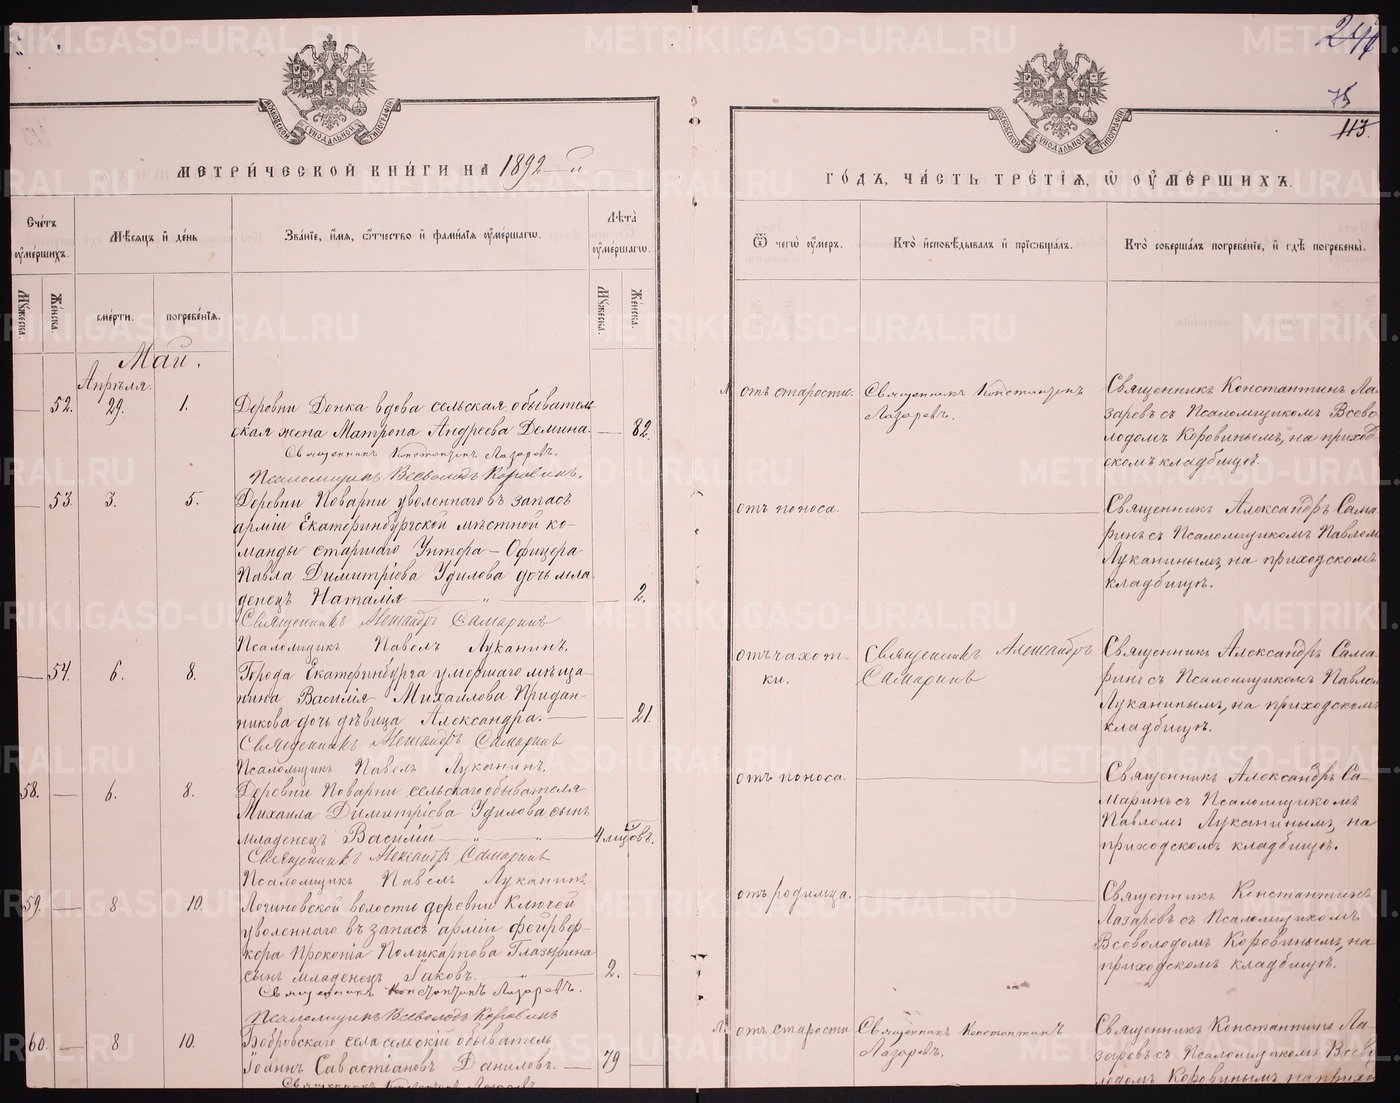 244
75
113
МОСКОВСКОЙ СѴНОДАЛЬНОЙ ТИПОГРАФІИ
МОСКОВСКОЙ СѴНОДАЛЬНОЙ ТИПОГРАФІИ
МЕТРИ́ЧЕСКОЙ КНИ́ГИ НА 1892-й
ГО́ДЪ, ЧА́СТЬ ТРЕ́ТІЯ, Ѿ ОУМЕ́РШИХЪ.
Сче́тъ оумершихъ.
Мѣсяцъ и день
Зва́нїе, имя, отчество и фамилїя оумершаго.
Лѣта оумершаго.
Отъ чего оумеръ.
Кто исповѣдывалъ и прїобщалъ.
Кто совершалъ погребенїе, и гдѣ погребены.
Мужеска.
Женска.
смерти.
погребенїя.
Мужеска.
Женска.
Май.
Апрѣля
— 52. 29. 1.
Деревни Донка вдова сельская обыватель-
ская жена Матрона Андреева Демина. — 82.
Священникъ Константинъ Лазаревъ.
Псаломщикъ Всеволодъ Коровинъ.
отъ старости.
Священникъ Константинъ
Лазаревъ.
Священникъ Константинъ Ла-
заревъ съ Псаломщикомъ Всево-
лодомъ Коровинымъ, на приход-
скомъ кладбищѣ.
— 53. 3. 5.
Деревни Поварни уволеннаго въ запасъ
арміи Екатеринбургской мѣстной ко-
манды старшаго Унтеръ-Офицера
Павла Димитріева Удилова дочь мла-
денецъ Наталія — " — 2.
Священникъ Александръ Самаринъ
Псаломщикъ Павелъ Луканинъ.
отъ поноса.
Священникъ Александръ Сама-
ринъ съ Псаломщикомъ Павломъ
Луканинымъ, на приходскомъ
кладбищѣ.
— 54. 6. 8.
Города Екатеринбурга умершаго мѣща-
нина Василія Михаилова Придан-
никова дочь дѣвица Александра. — 21.
Священникъ Александръ Самаринъ
Псаломщикъ Павелъ Луканинъ.
отъ чахот-
ки.
Священникъ Александръ
Самаринъ
Священникъ Александръ Сама-
ринъ съ Псаломщикомъ Павломъ
Луканинымъ, на приходскомъ
кладбищѣ.
58. — 6. 8.
Деревни Поварни сельскаго обывателя
Михаила Димитріева Удилова сынъ
младенецъ Василій — " " 4 мцовъ.
Священникъ Александръ Самаринъ
Псаломщикъ Павелъ Луканинъ.
отъ поноса.
Священникъ Александръ Са-
маринъ съ Псаломщикомъ
Павломъ Луканинымъ, на
приходскомъ кладбищѣ.
59. — 8 10.
Логиновской волости деревни Ключей
уволеннаго въ запасъ арміи фейервер-
кера Прокопія Поликарпова Глазырина
сынъ младенецъ Іаковъ. " 2. —
Священникъ Константинъ Лазаревъ.
Псаломщикъ Всеволодъ Коровинъ
отъ родимца.
Священникъ Константинъ
Лазаревъ съ Псаломщикомъ
Всеволодомъ Коровинымъ, на
приходскомъ кладбищѣ.
60. — 8 10.
Бобровскаго села сельскій обыватель
Іоаннъ Савастіановъ Даниловъ. — 79 —
Священникъ Константинъ Лазаревъ
отъ старости
Священникъ Константинъ
Лазаревъ.
Священникъ Константинъ Ла-
заревъ съ Псаломщикомъ Всево-
лодомъ Коровинымъ на приход-
METRIKI.GASO-URAL.RU